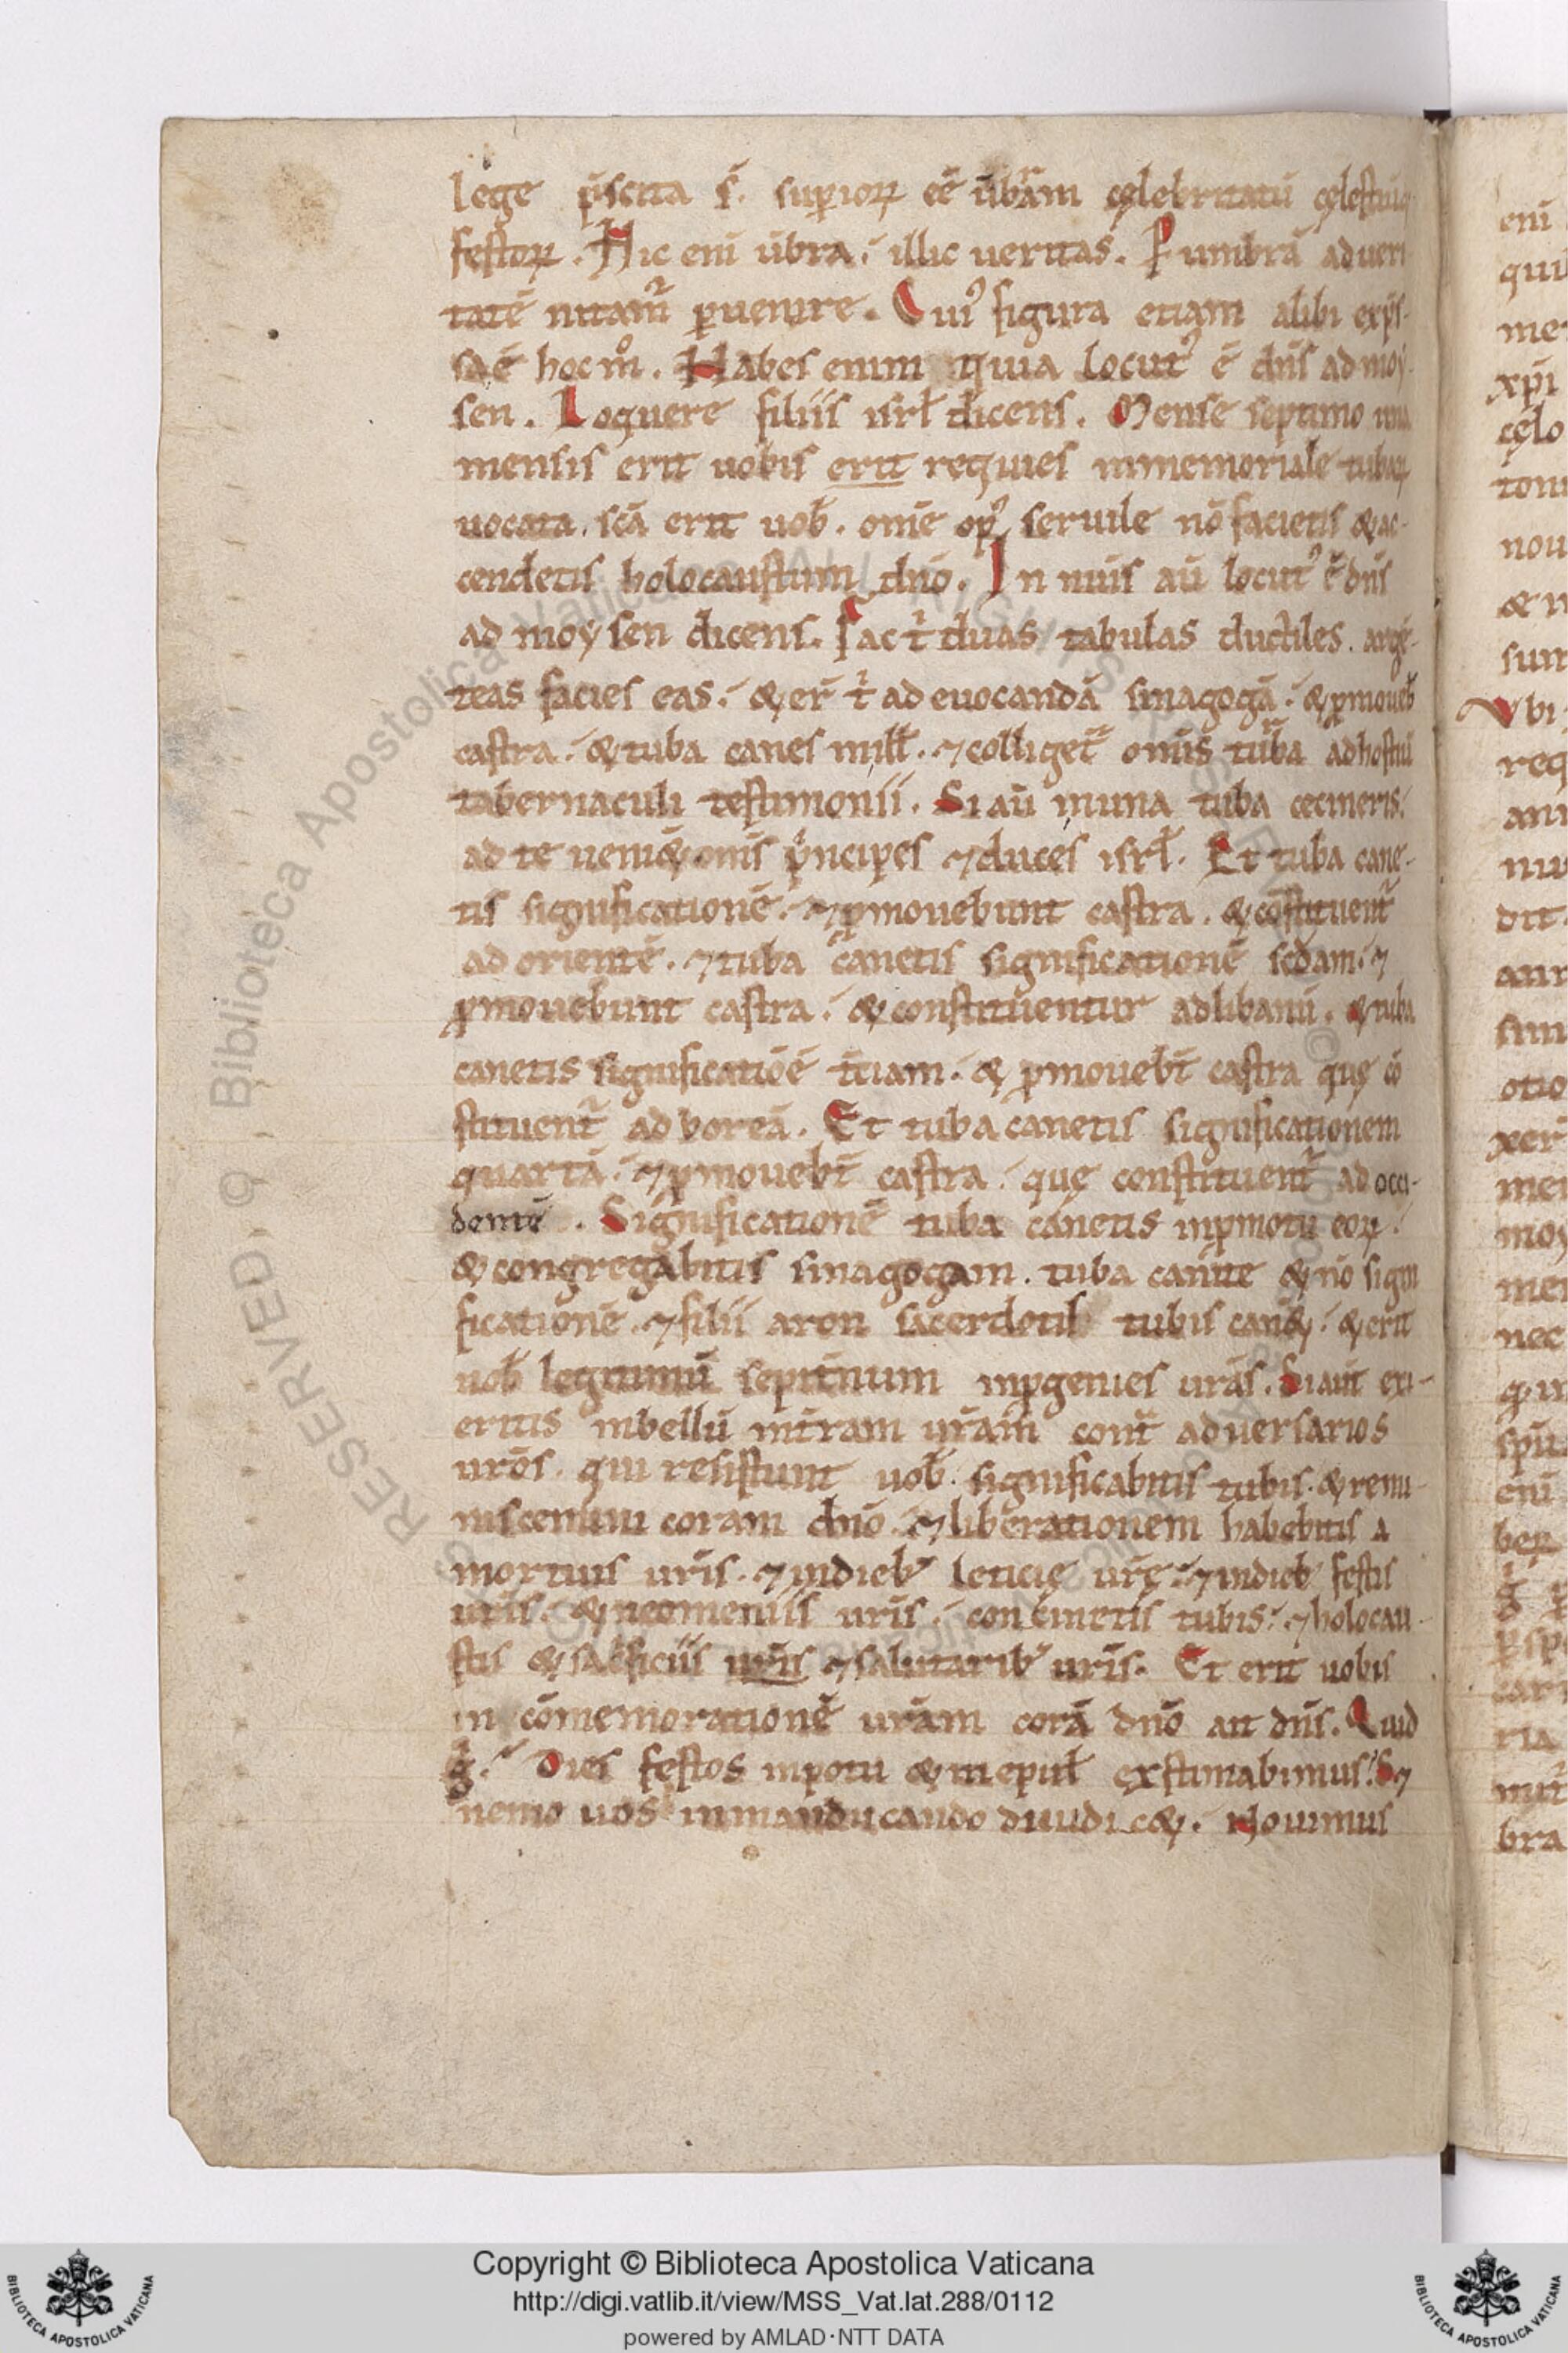 lege p̄scita s̄. suꝑioꝝ eē ūbrām cęlebritatū cęlestiūq
festoꝝ. Hic eni ūbra. illic ueritas. Ꝑ umbrā ad ueri
tatē nitam̄ ꝑuenire. Cui᷒ figura etiam alibi exp̄s-
sa ē hoc m̊. Habes enim quia locut᷒ ē dn̄s ad moẏ-
sen. Loquere filiis isrl̄ dicens. Mense septimo una
mensis erit uobis erit requies inmemoriale tubaꝝ
uocata. sc̄a erit uob̄. om̄e op᷒ seruile nō facietis & ac-
cendetis holocaustum dn̄o. In nūis aū locut᷒ ē dn̄s
ad moẏsen dicens. Fac t̄ duas tabulas ductiles. argē-
teas facies eas. & er̄ t̄ ad euocandā sinagogā. & ꝓmoueb̄
castra. & tuba canes in ill̄. ⁊ colliget̄ omīs turba ad hostiū
tabernaculi testimonii. Si aū in una tuba cecineris.
ad te ueni& om̄s pͥncipes ⁊ duces isrl̄. Et tuba cane-
tis significationē. ⁊ ꝓmouebunt castra. & cōstituent̄
ad orientē. ⁊ tuba canetis significationē scd̄am. ⁊
ꝓmouebunt castra. & constituentur ad libanū. & tuba
canetis significatiōē t̄ciam. & ꝓmouebt̄ castra quę cō
stituent̄ ad boreā. Et tuba canetis significationem
quartā. ⁊ ꝓmouebt̄ castra. quę constituent̄ ad occi-
dentē. Significationē tuba canetis inꝓmotu eoꝝ.
& congregabitis sinagogam. tuba canite & nō signi
ficationē. ⁊ filii aron sacerdotib̄ tubis can&. & erit
uob̄ legitimū sēpitnum inꝓgenies urās. Si aut̄ exi-
eritis inbellū int̄ram urām cont̄ aduersarios
urōs. qui resistunt uob̄. significabitis tubis. & remi-
niscemini coram dn̄o. ⁊ liberationem habebitis a
mortuis urīs. ⁊ indieb᷒ leticię urę. ⁊ indieb᷒ festis
urīs. & neomeniis urīs. concinetis tubis. ⁊ holocau-
stis & sacͥficiis urīs ⁊ salutarib᷒ urīs. Et erit uobis
in cōmemorationē urām corā dn̄o ait dn̄s. Quid
gͦ. Dies festos inpotu & inepul̄ exstimabimus? S⁊
nemo uos inmanducando diiudic&. Nouimus
Copyright © Biblioteca Apostolica Vaticana
http://digi.vatlib.it/view/MSS_Vat.lat.288/0112
powered by AMLAD·NTT DATA
BIBLIOTECA APOSTOLICA VATICANA
BIBLIOTECA APOSTOLICA VATICANA